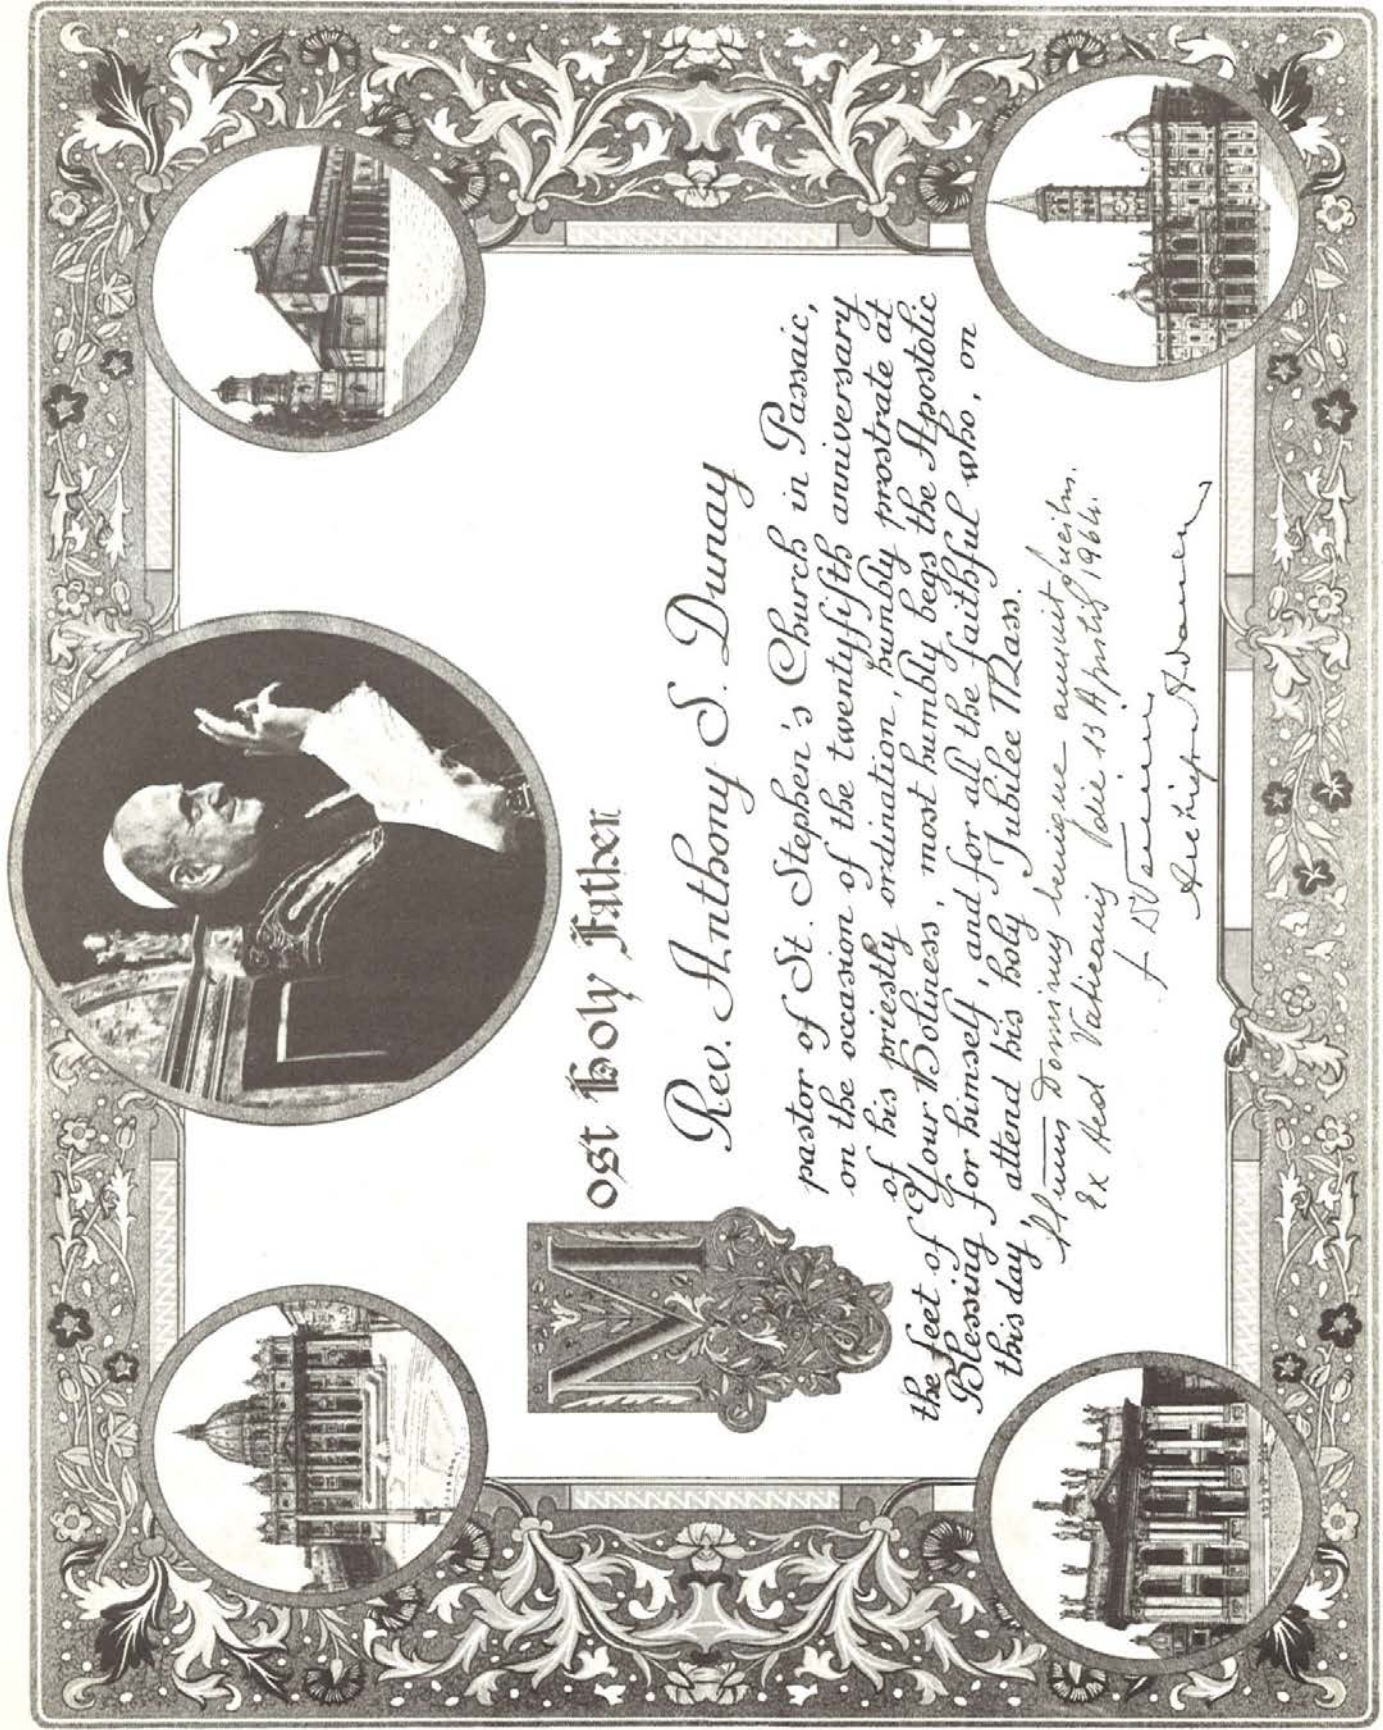 Most Holy Father
Rev. Anthony S. Dunay
pastor of St. Stephen's Church in Passaic,
on the occasion of the twentyfifth anniversary
of his priestly ordination, humbly prostrate at
the feet of Your Holiness, most humbly begs the Apostolic
Blessing for himself, and for all the faithful who, on
this day, attend his holy Jubilee Mass.
Dominus benigne annuit precibus.
Ex Aed Vaticanis die 13 Aprilis 1964.